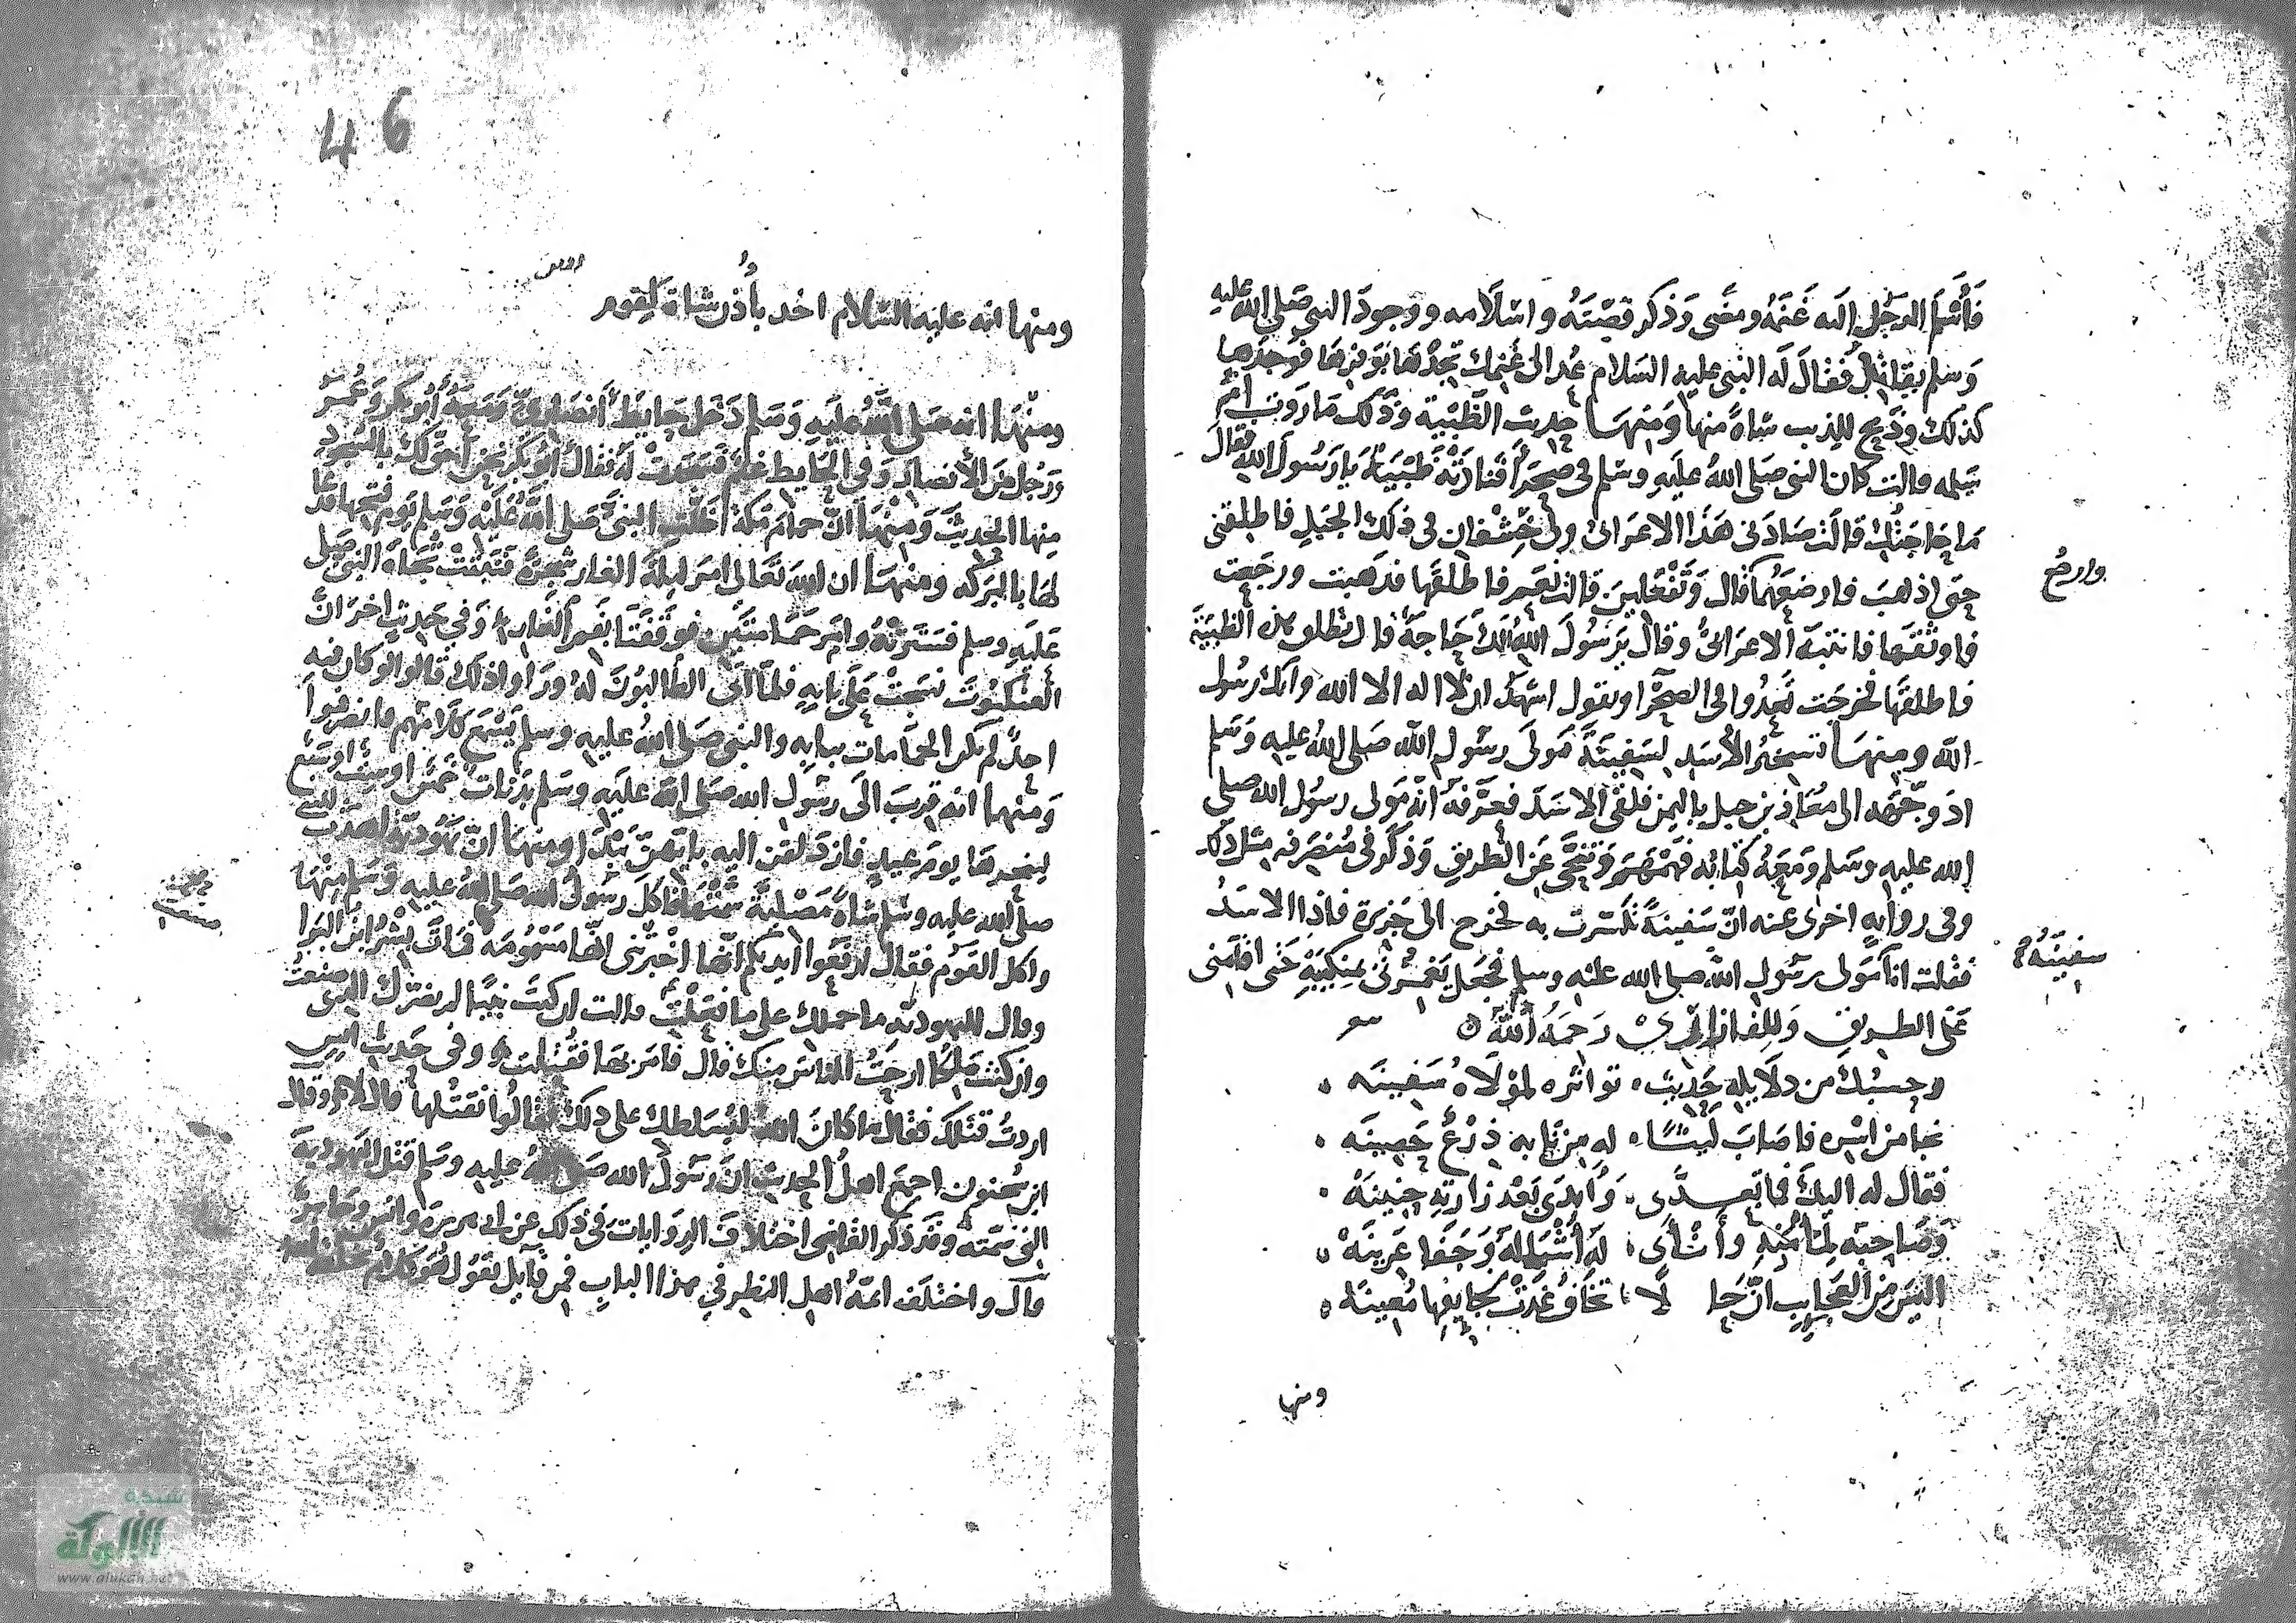 فأسلم الرجل إليه غنمه ومضى وذكر قصته واسلامه ووجود النبي صلى الله عليه
وسلم يقاتل فقال له النبي عليه السلام عد الى غنمك تجدها بوفرها فوجدها
كذلك وذبح للذيب شاة منها ومنها حديث الظبية وذلك ما روت ام
سلمه قالت كان النبي صلى الله عليه وسلم في صحرا فنادته ظبية يا رسول الله فقال
ما حاجتك قالت صادني هذا الاعرابي ولي خشفان في ذلك الجبل فاطلقني
حتى اذهب فارضعهما قال وتفعلين قالت نعم فاطلقها فذهبت ورجعت
وارجع
فاوثقها فانتبه الاعرابي وقال يرسول الله الك حاجة قال تطلق هذه الظبية
فاطلقها فخرجت تعدوا في الصحرا وتقول اشهد ان لا اله الا الله وانك رسول
الله ومنها تسخير الأسد لسفينة مولى رسول الله صلى الله عليه وسلم
اذ وجهه الى معاذ بن جبل باليمن فلقي الاسد فعرفه انه مولى رسول الله صلى
الله عليه وسلم ومعه كتابه فهمهم وتنحى عن الطريق وذكر في منصرفه مثل ذلك
وفي رواية اخرى عنه ان سفينة تكسرت به فخرج الى جزيرة فاذا الاسد
سفينة
فقلت انا مولى رسول الله صلى الله عليه وسلم فجعل يغمزني بمنكبه حتى اقامني
على الطريق وللفازازي رحمه الله
وحسبك من دلايله حديث تواتره لمولاه سفينه
نجا من اسره فاصاب ليثا له من نابه درع حصينه
فقال له اليك فما تعدى وابدى بعد زارته حنينه
وصاحبه ليأمنه وأشأى له أشباله وجفا عرينه
اليس من العجايب ان حا لا تخاف غدت بجايفها معينه
ومنها
46
ومنها انه عليه السلام اخذ بأذن شاة لقوم
ومنها انه صلى الله عليه وسلم دخل حايط أنصاري ومعه أبو بكر وعمر
ورجل من الأنصار وفي الحايط غنم فسجدت له فقال ابو بكر نحن أحق لك بالسجود
منها الحديث ومنها ان حمام مكة اظلت النبي صلى الله عليه وسلم يوم فتحها فدعا
لها بالبركه ومنها ان الله تعالى امر ليلة الغار شجرة فنبتت تجاه النبي صلى
عليه وسلم فسترته وامر حمامتين فوقفتا بفم الغار وفي حديث اخر ان
العنكبوت نسجت على بابه فلما اتى الطالبون له وراوا ذلك قالوا لو كان فيه
احد لم تكن الحمامات ببابه والنبي صلى الله عليه وسلم يسمع كلامهم فانصرفوا
ومنها انه قرب الى رسول الله صلى الله عليه وسلم بدنات خمس او ست او سبع
لينحرها يوم عيد فازدلفن اليه بايتهن يبدا ومنها ان يهودية اهدت للنبي
صلى الله عليه وسلم شاة مصلية سمتها فاكل رسول الله صلى الله عليه وسلم منها
واكل القوم فقال ارفعوا ايديكم انها اخبرتني انها مسمومه فمات بشر ابن البرا
وقال لليهودية ما حملك على ما فعلت قالت ان كنت نبيا لم يضرك الذي صنعت
وان كنت ملكا ارحت الناس منك قال فامر بها فقتلت وفي حديث انس
اردت قتلك فقال ما كان الله ليسلطك على ذلك فقالوا نقتلها قال لا وقال
ابن سحنون اجمع اهل الحديث ان رسول الله صلى الله عليه وسلم قتل اليهودية
التي سمته وقد ذكر القاضي اختلاف الروايات في ذلك عن ابي هريرة وانس وجابر
قال واختلف ائمة اهل النظر في هذا الباب فمن قايل يقول هو كلام
شبكة
الألوكة
www.alukah.net